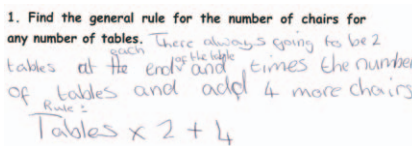 1. Find the general rule for the number of chairs for
any number of tables. There always going to be 2
tables at the each end of the table and times the number
of tables and add 4 more chairs
Rule:
Tables x 2 + 4